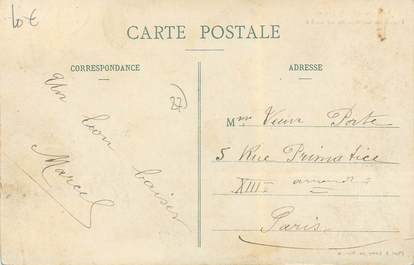 10€
CARTE POSTALE
CORRESPONDANCE
ADRESSE
Un bon baiser
Marcel
Mme Veuve Porte
5 Rue Primatice
XIIIe
Paris